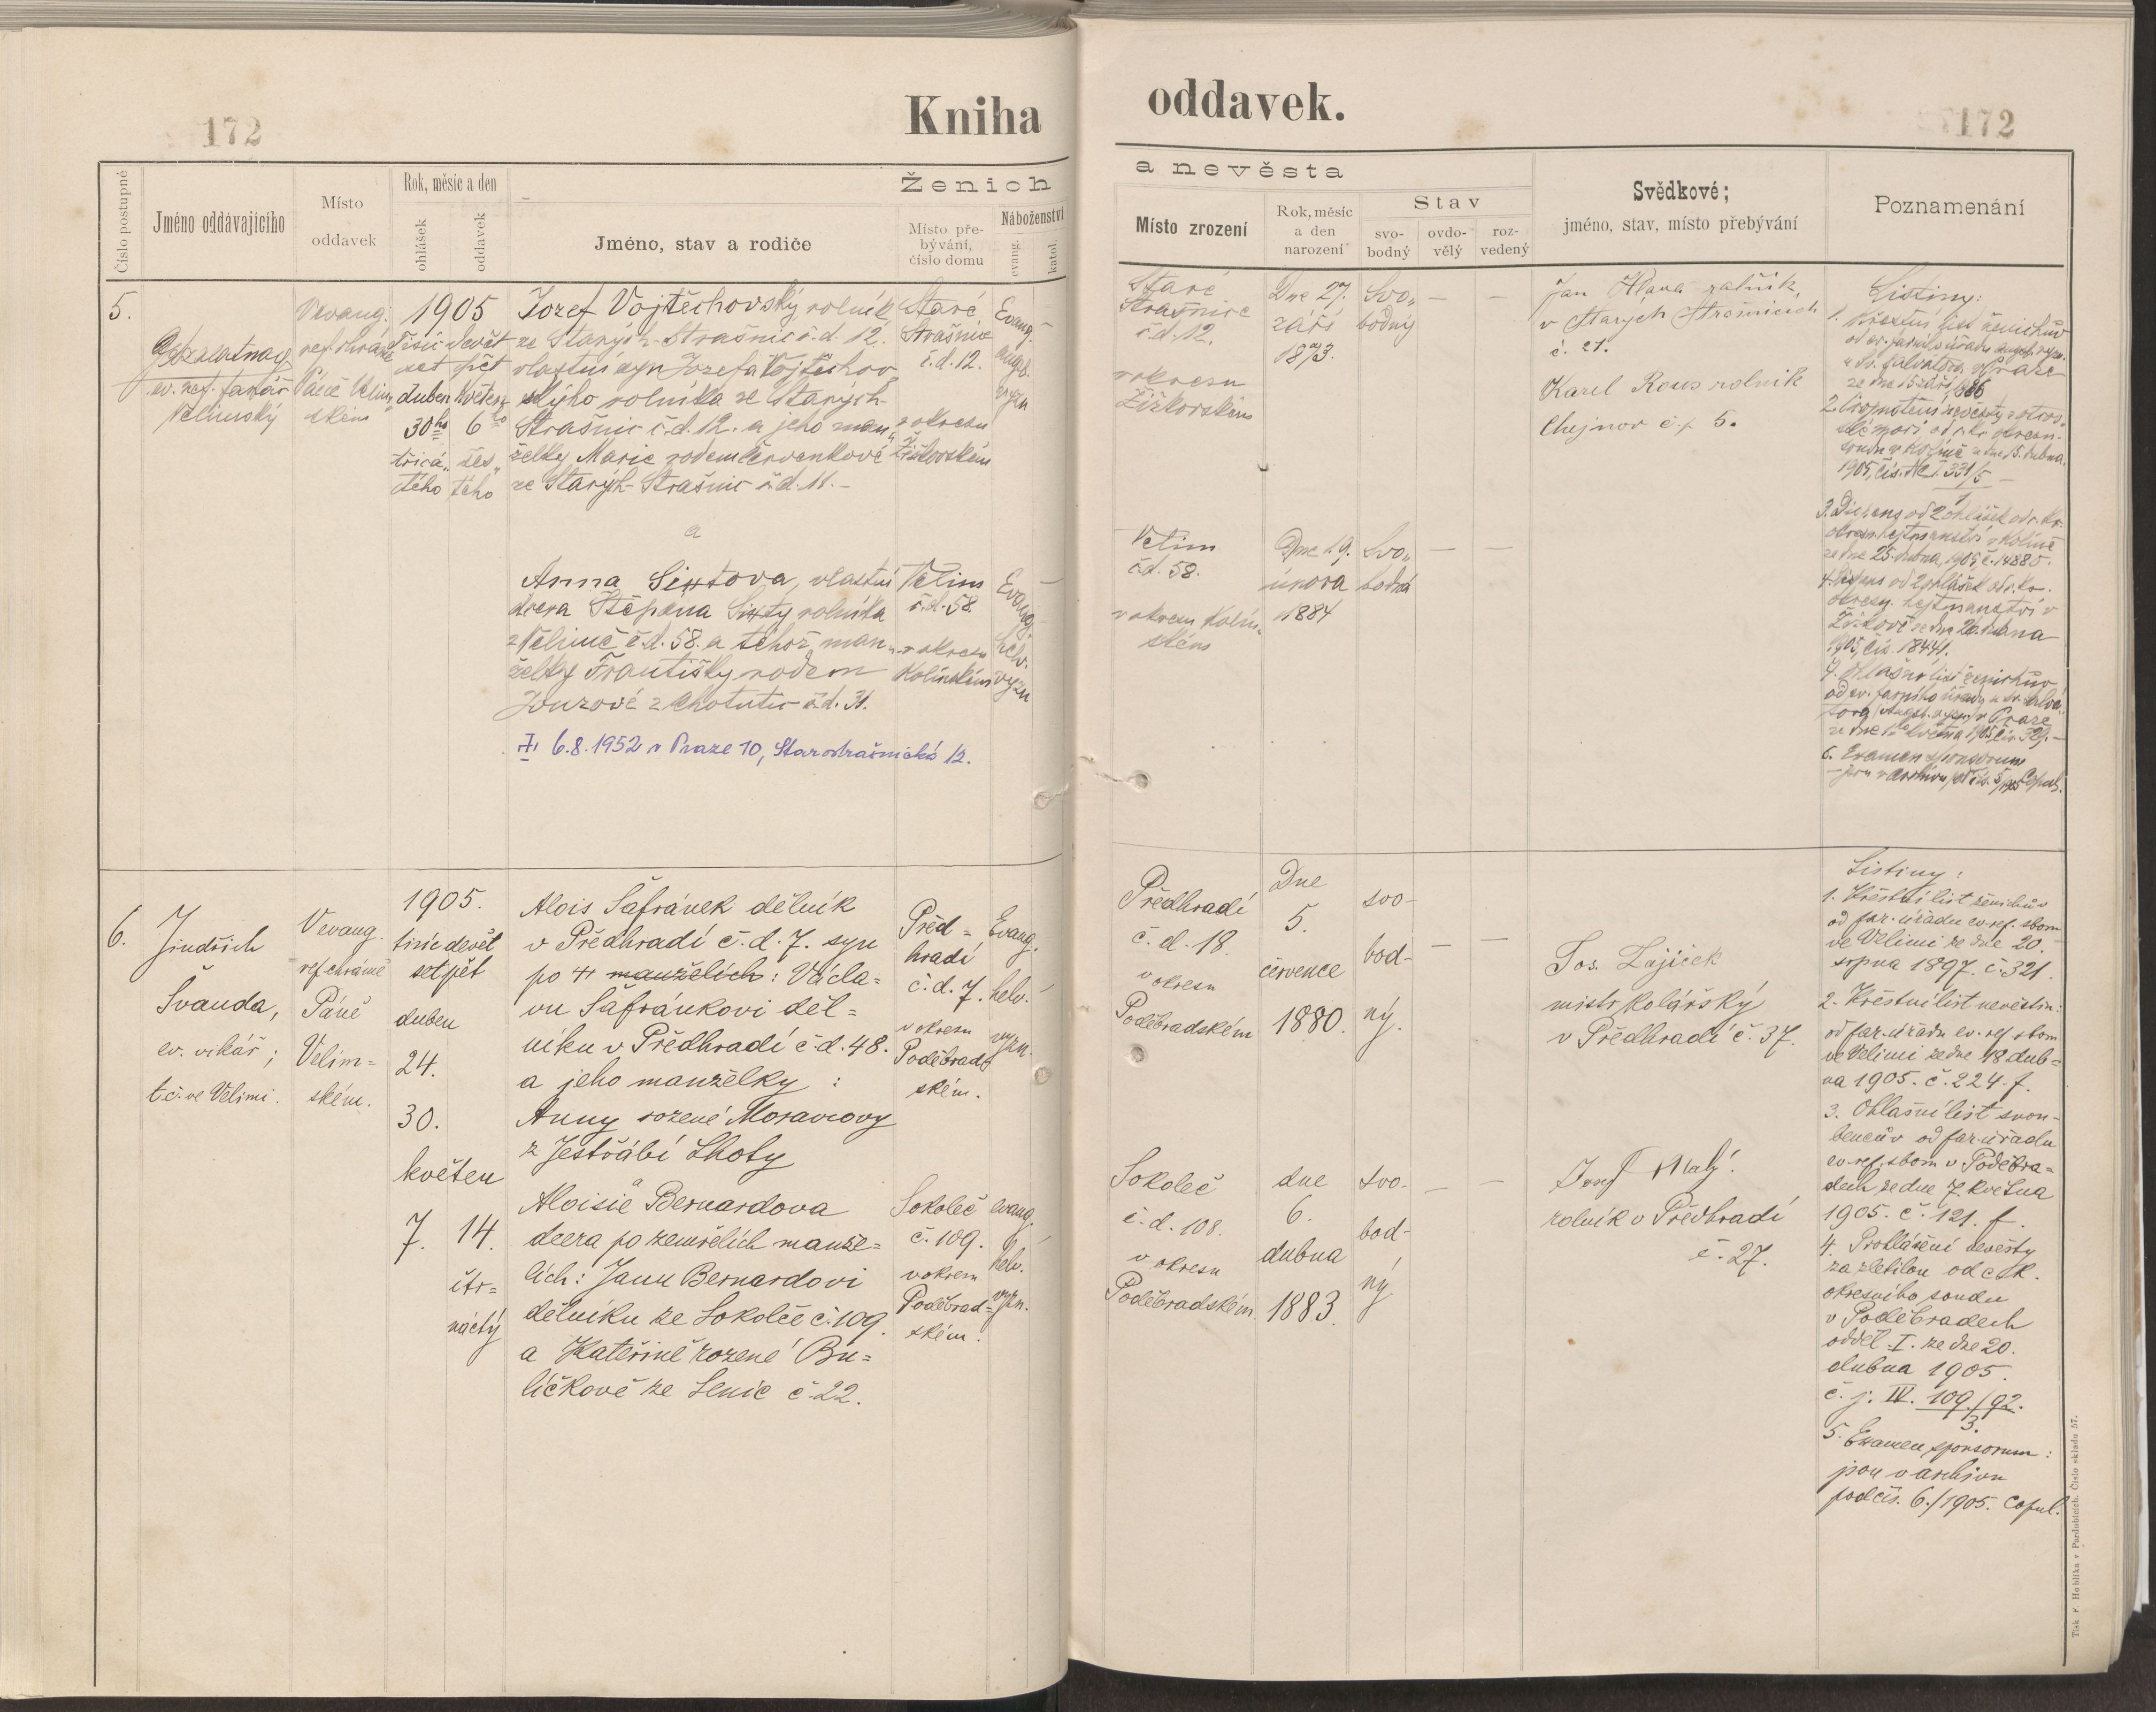 172
Kniha
oddavek.
172
Číslo postupné
Jméno oddávajícího
Místo
oddavek
Rok, měsíc a den
ohlášek
oddavek
Ženich
Jméno, stav a rodiče
Místo pře-
bývání,
číslo domu
Náboženství
evang.
katol.
a nevěsta
Místo zrození
Rok, měsíc
a den
narození
Stav
svo-
bodný
ovdo-
vělý
roz-
vedený
Svědkové;
jméno, stav, místo přebývání
Poznamenání
5.
ev. ref. farář
Velimský
V evang.
ref. chrámě
Páně Velim„
ském
1905
Tisíc devět
set pět
duben květen
30ho 6ho
třicá„ šes„
tého tého
Jozef Vojtěchovský, rolník
ze Starých-Strašnic č.d. 12.
vlastní syn Jozefa Vojtěchov„
ského rolníka ze Starých-
Strašnic č.d. 12. a jeho man„
želky Marie rodem Červenkové
ze Starých-Strašnic č.d. 11.-
a
Anna Sixtova, vlastní
dcera Štěpána Sixty rolníka
z Velimě č.d. 58. a téhož man„
želky Františky rodem
Jouzové z Chotutic č.d. 31.
6.8.1952 v Praze 10, Starostrašnická 12.
Staré
Strašnice
č.d. 12.
v okresu
Žižkovském
Evang.
augs.
vyzn
Velim
č.d. 58.
v okresu
Kolínském
Evang.
helv.
vyzn
Staré
Strašnice
č.d. 12.
v okresu
Žižkovském
Dne 27.
září
1873.
Svo„
bodný
Velim
č.d. 58.
v okresu Kolín„
ském
Dne 19.
února
1884
Svo„
bodná
Jan Hlava rolník,
v Starych Strašnicích
č. 21.
Karel Rous rolník
Chejnov č. p. 5.
Listiny:
1. Křestní list ženichův
od ev. farního úřadu augsb. vyzn.
u Sv. Salvátora v Praze
ze dne 15 září 1886
v Kolíně ze dne 15. dubna
1905, čís. Nc I. 331/5
1
3. Dispens od 2 ohlášek od c. kr.
okres. hejtmanství v Kolíně
ze dne 25. dubna, 1905, č. 14885.
4. Dispens od 2 ohlášek od c. kr.
okresn. hejtmanství v
Žižkově ze dne 20. dubna
1905, čís. 18441.
ohlašní list ženichův
od ev. farního úřadu u Sv. Salvá„
tora (Augsb. vyzn.) v Praze
6. Examen sponsorum
6.
Jindřich
Švanda,
ev. vikář;
t. č. ve Velimi.
V evang.
ref. chrámě
Páně
Velim=
ském.
1905.
tisíc devět
set pět
duben
24.
30.
květen
7. 14.
čtr=
náctý
Alois Šafránek dělník
v Předhradí č. d. 7. syn
po manželích: Václa=
vu Šafránkovi děl=
níku v Předhradí č. d. 48.
a jeho manželky :
Anny rozené Moravcovy
z Jestřábí Lhoty
a
Aloisie Bernardova
dcera po zemřelích manže=
lích: Janu Bernardovi
dělníku ze Sokolče č. 109.
a Kateřině rozené Bu=
líčkově ze Lenic č. 22.
Před=
hradí
č. d. 7.
v okresu
Poděbrad=
ském.
Evang.
helv.
vyzn.
Sokoleč
č. 109.
v okresu
Poděbrad=
ském.
evang.
helv.
vyzn.
Předhradí
č. d. 18.
v okresu
Poděbradském
Dne
5.
července
1880.
svo-
bod-
ný.
Sokoleč
č. d. 108.
v okresu
Poděbradském.
dne
6.
dubna
1883.
svo-
bod-
ný
Jos. Lajíček
mistr kolářský
v Předhradí č. 37.
Josef Malý.
rolník v Předhradí
č. 27.
Listiny:
1. Křestní list ženichův
od far. úřadu ev. ref. sboru
ve Velimi ze dne 20.
srpna 1897. č. 321.
2. Křestní list nevěstin:
od far. úřadu ev. ref. sboru
ve Velimi ze dne 18. dub=
na 1905. č. 224. f.
3. Ohlašní list snou-
bencův od far. úřadu
ev. ref. sboru v Poděbra=
dech ze dne 7. května
1905. č. 121. f.
4. Prohlášení nevěsty
za zletilou od c. k.
okresního soudu
v Poděbradech
odděl. I. ze dne 20.
dubna 1905.
č. j. IV. 109./92.
3.
5. Examen sponsorum:
jsou v archivu
pod čís. 6./1905. Copul.
Tisk F. Hoblíka v Pardubicích. Číslo skladu 57.